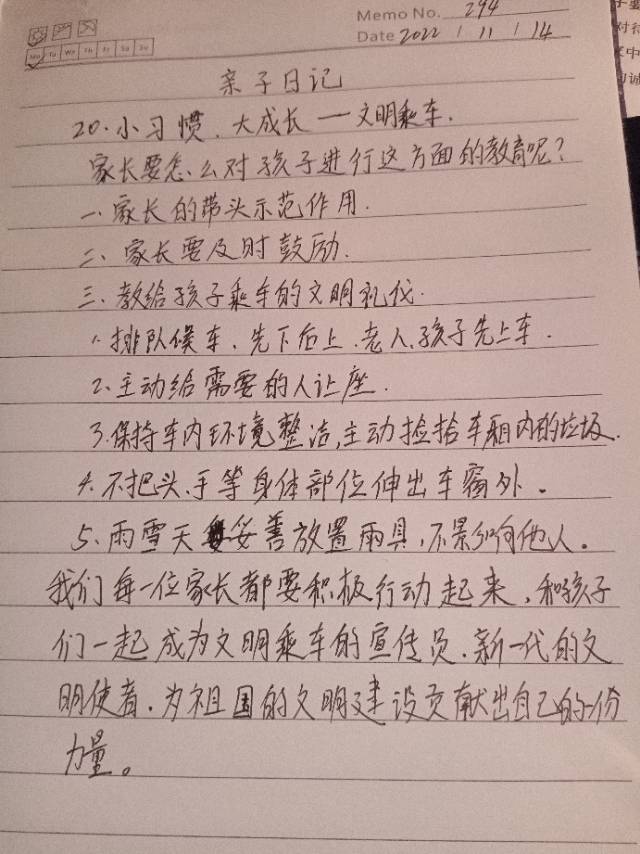 Memo No. 294
Mo Tu We Th Fr Sa Su
Date 2022 / 11 / 14
亲子日记
20.小习惯.大成长一文明乘车.
家长要怎么对孩子进行这方面的教育呢?
一、家长的带头示范作用.
二、家长要及时鼓励.
三、教给孩子乘车的文明礼仪.
1.排队候车.先下后上.老人.孩子先上车.
2.主动给需要的人让座.
3.保持车内环境整洁,主动捡拾车厢内的垃圾.
4.不把头、手等身体部位伸出车窗外。
5、雨雪天妥善放置雨具,不影响他人。
我们每一位家长都要积极行动起来,和孩子
们一起成为文明乘车的宣传员.新一代的文
明使者.为祖国的文明建设贡献出自己的一份
力量。